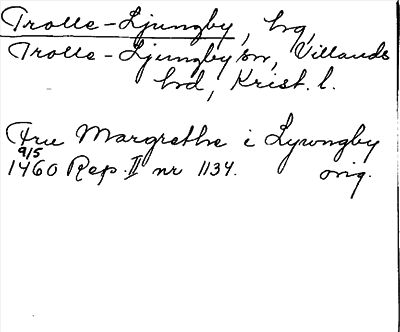 Trolle-Ljungby, hg,
Trolle-Ljungby sn, Villands
hd, Krist. l.
Fru Margrethe i Lywngby
9/5
1460 Rep. II nr 1134. orig.